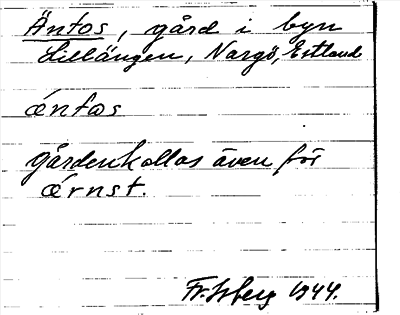 Äntos, gård i byn
Lillängen, Nargö, Estland
äntas
gården kallas även för
ärnst.
Fr. Isberg 1944.